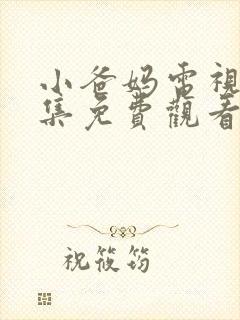 小爸妈電視
集免費觀看
祝筱筠